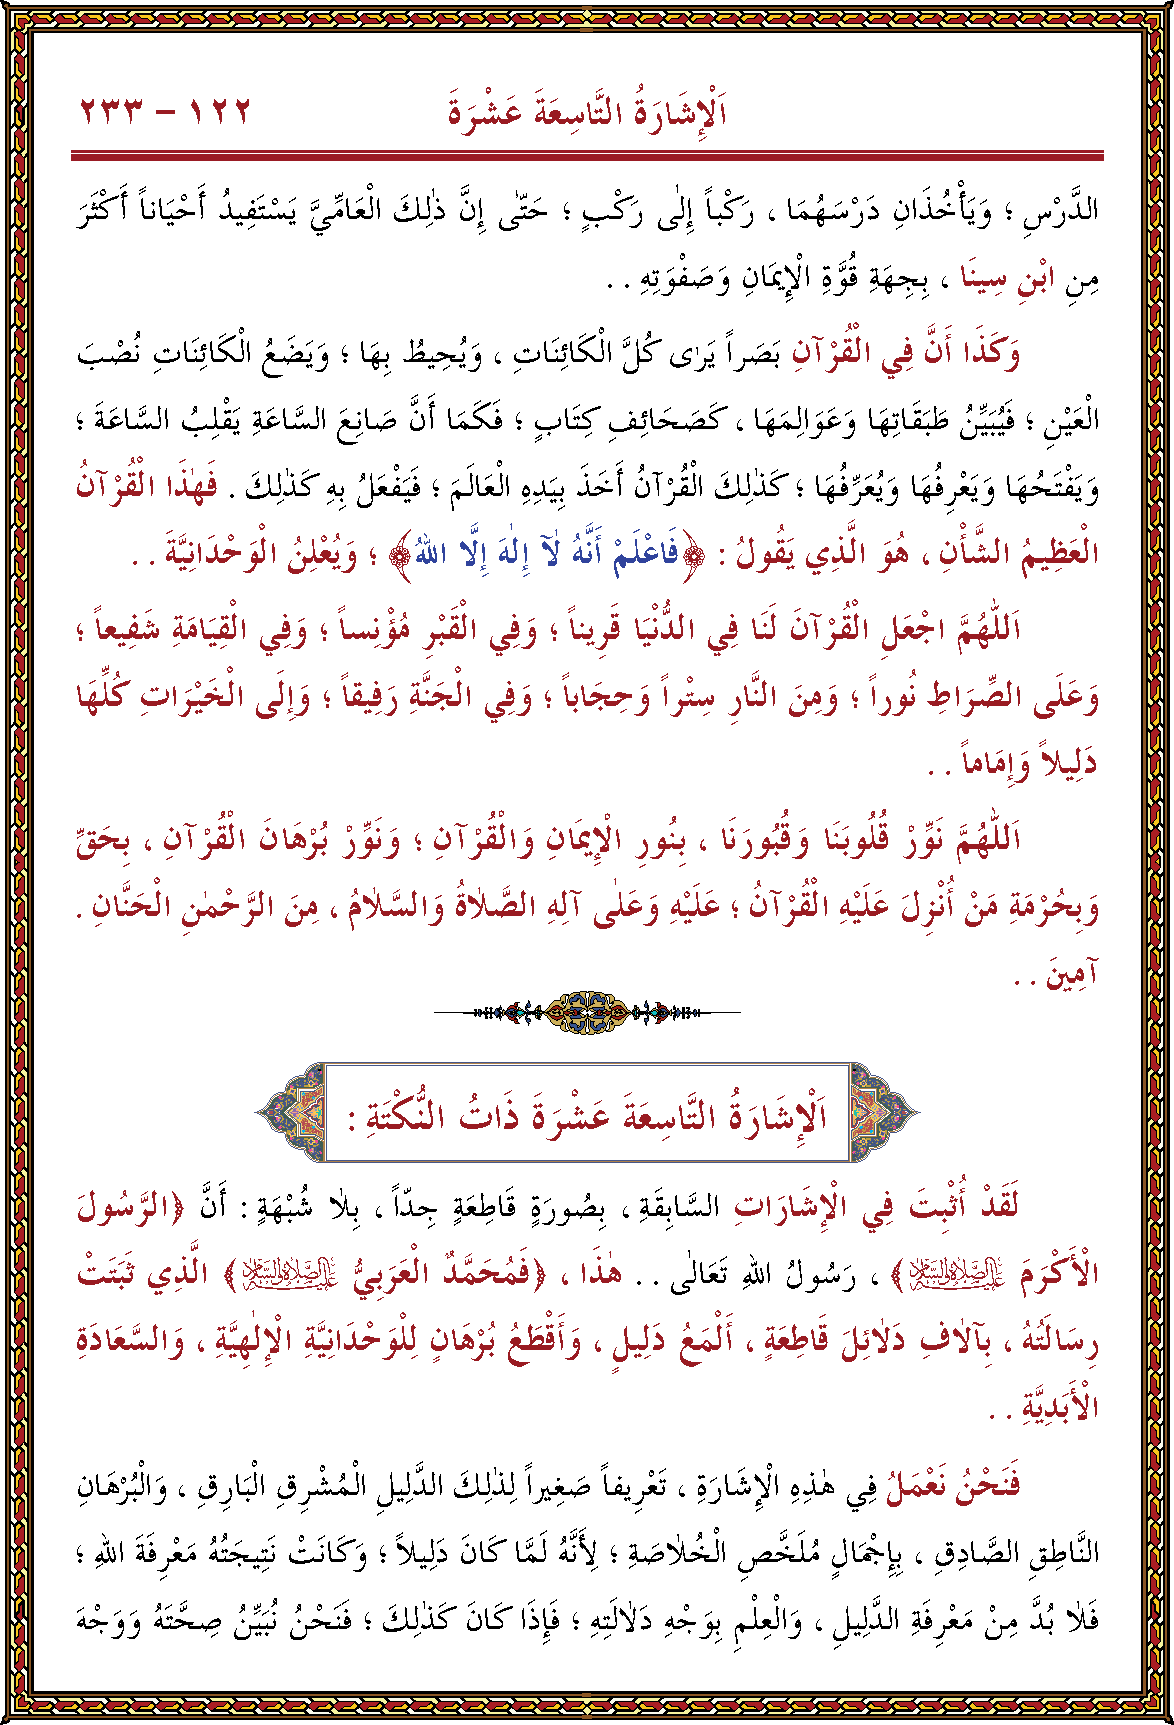 اَلْإِشَارَةُ التَّاسِعَةَ عَشْرَةَ ١٢٢ - ٢٣٣
الدَّرْسِ ؛ وَيَأْخُذَانِ دَرْسَهُمَا ، رَكْباً إِلٰى رَكْبٍ ؛ حَتّٰى إِنَّ ذٰلِكَ الْعَامِّيَّ يَسْتَفِيدُ أَحْيَاناً أَكْثَرَ
مِنِ ابْنِ سِينَا ، بِجِهَةِ قُوَّةِ الْإِيمَانِ وَصَفْوَتِهِ . .
وَكَذَا أَنَّ فِي الْقُرْآنِ بَصَراً يَرٰى كُلَّ الْكَائِنَاتِ ، وَيُحِيطُ بِهَا ؛ وَيَضَعُ الْكَائِنَاتِ نُصْبَ
الْعَيْنِ ؛ فَيُبَيِّنُ طَبَقَاتِهَا وَعَوَالِمَهَا ، كَصَحَائِفِ كِتَابٍ ؛ فَكَمَا أَنَّ صَانِعَ السَّاعَةِ يَقْلِبُ السَّاعَةَ ؛
وَيَفْتَحُهَا وَيَعْرِفُهَا وَيُعَرِّفُهَا ؛ كَذٰلِكَ الْقُرْآنُ أَخَذَ بِيَدِهِ الْعَالَمَ ؛ فَيَفْعَلُ بِهِ كَذٰلِكَ . فَهٰذَا الْقُرْآنُ
الْعَظِيمُ الشَّأْنِ ، هُوَ الَّذِي يَقُولُ : ﴿فَاعْلَمْ أَنَّهُ لَآ إِلٰهَ إِلَّا اللهُ﴾ ؛ وَيُعْلِنُ الْوَحْدَانِيَّةَ . .
اَللّٰهُمَّ اجْعَلِ الْقُرْآنَ لَنَا فِي الدُّنْيَا قَرِيناً ؛ وَفِي الْقَبْرِ مُؤْنِساً ؛ وَفِي الْقِيَامَةِ شَفِيعاً ؛
وَعَلَى الصِّرَاطِ نُوراً ؛ وَمِنَ النَّارِ سِتْراً وَحِجَاباً ؛ وَفِي الْجَنَّةِ رَفِيقاً ؛ وَإِلَى الْخَيْرَاتِ كُلِّهَا
دَلِيلاً وَإِمَاماً . .
اَللّٰهُمَّ نَوِّرْ قُلُوبَنَا وَقُبُورَنَا ، بِنُورِ الْإِيمَانِ وَالْقُرْآنِ ؛ وَنَوِّرْ بُرْهَانَ الْقُرْآنِ ، بِحَقِّ
وَبِحُرْمَةِ مَنْ أُنْزِلَ عَلَيْهِ الْقُرْآنُ ؛ عَلَيْهِ وَعَلٰى آلِهِ الصَّلَاةُ وَالسَّلَامُ ، مِنَ الرَّحْمٰنِ الْحَنَّانِ .
آمِينَ . .
اَلْإِشَارَةُ التَّاسِعَةَ عَشْرَةَ ذَاتُ النُّكْتَةِ :
لَقَدْ أُثْبِتَ فِي الْإِشَارَاتِ السَّابِقَةِ ، بِصُورَةٍ قَاطِعَةٍ جِدّاً ، بِلَا شُبْهَةٍ : أَنَّ ﴿الرَّسُولَ
الْأَكْرَمَ عَلَيْهِ الصَّلَاةُ وَالسَّلَامُ﴾ ، رَسُولُ اللهِ تَعَالٰى . . هٰذَا ، ﴿فَمُحَمَّدٌ الْعَرَبِيُّ عَلَيْهِ الصَّلَاةُ وَالسَّلَامُ﴾ الَّذِي ثَبَتَتْ
رِسَالَتُهُ ، بِآلَافِ دَلَائِلَ قَاطِعَةٍ ، أَلْمَعُ دَلِيلٍ ، وَأَقْطَعُ بُرْهَانٍ لِلْوَحْدَانِيَّةِ الْإِلٰهِيَّةِ ، وَالسَّعَادَةِ
الْأَبَدِيَّةِ . .
فَنَحْنُ نَعْمَلُ فِي هٰذِهِ الْإِشَارَةِ ، تَعْرِيفاً صَغِيراً لِذٰلِكَ الدَّلِيلِ الْمُشْرِقِ الْبَارِقِ ، وَالْبُرْهَانِ
النَّاطِقِ الصَّادِقِ ، بِإِجْمَالٍ مُلَخَّصِ الْخُلَاصَةِ ؛ لِأَنَّهُ لَمَّا كَانَ دَلِيلاً ؛ وَكَانَتْ نَتِيجَتُهُ مَعْرِفَةَ اللهِ ؛
فَلَا بُدَّ مِنْ مَعْرِفَةِ الدَّلِيلِ ، وَالْعِلْمِ بِوَجْهِ دَلَالَتِهِ ؛ فَإِذَا كَانَ كَذٰلِكَ ؛ فَنَحْنُ نُبَيِّنُ صِحَّتَهُ وَوَجْهَ